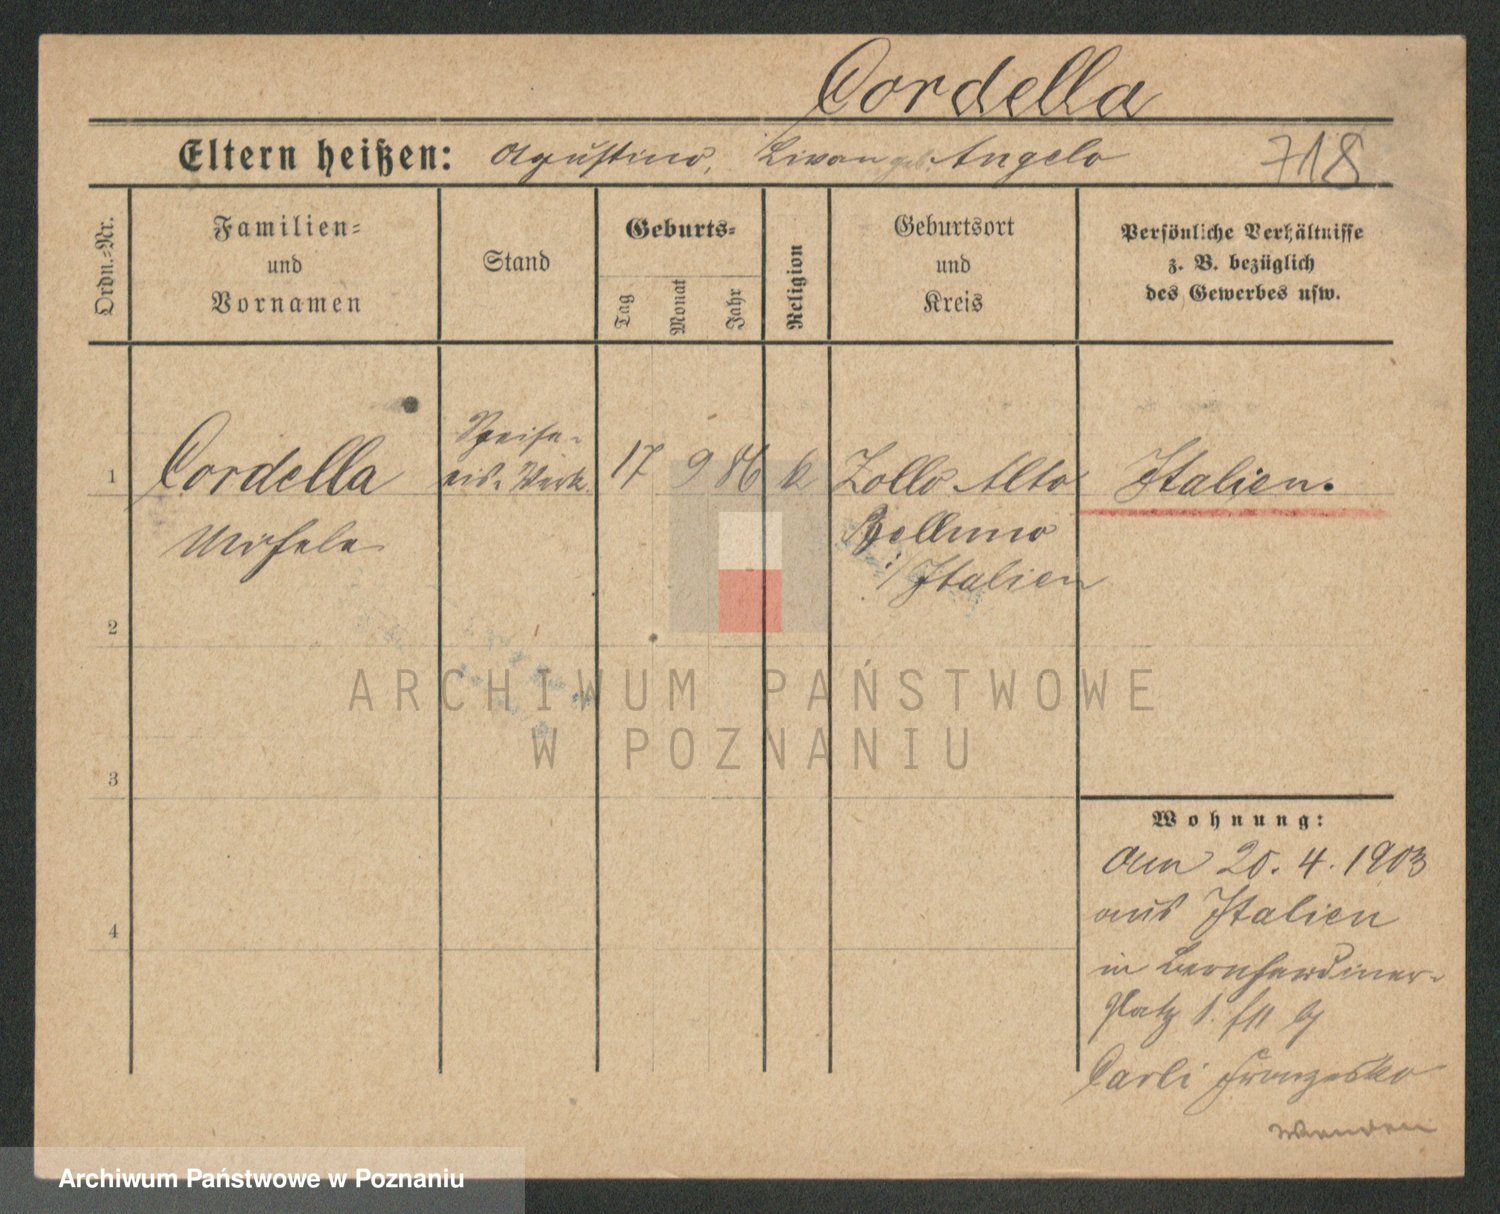 Cordella
Eltern heißen: Agustino, Livan geb. Angelo 718
Ordn.-Nr.
Familien-
und
Vornamen
Stand
Geburts-
Tag
Monat
Jahr
Religion
Geburtsort
und
Kreis
Persönliche Verhältnisse
z. B. bezüglich
des Gewerbes usw.
1 Cordella
Michele
Speise-
eis-Verk.
17 9 86 k
Zollo Alto
Belluno
i/Italien
Italien.
2
3
4
ARCHIWUM PAŃSTWOWE
W POZNANIU
Wohnung:
Am 20. 4. 1903
aus Italien
in Bernhardiner-
platz 1. bei
Carli Franzesko
Wenden
Archiwum Państwowe w Poznaniu